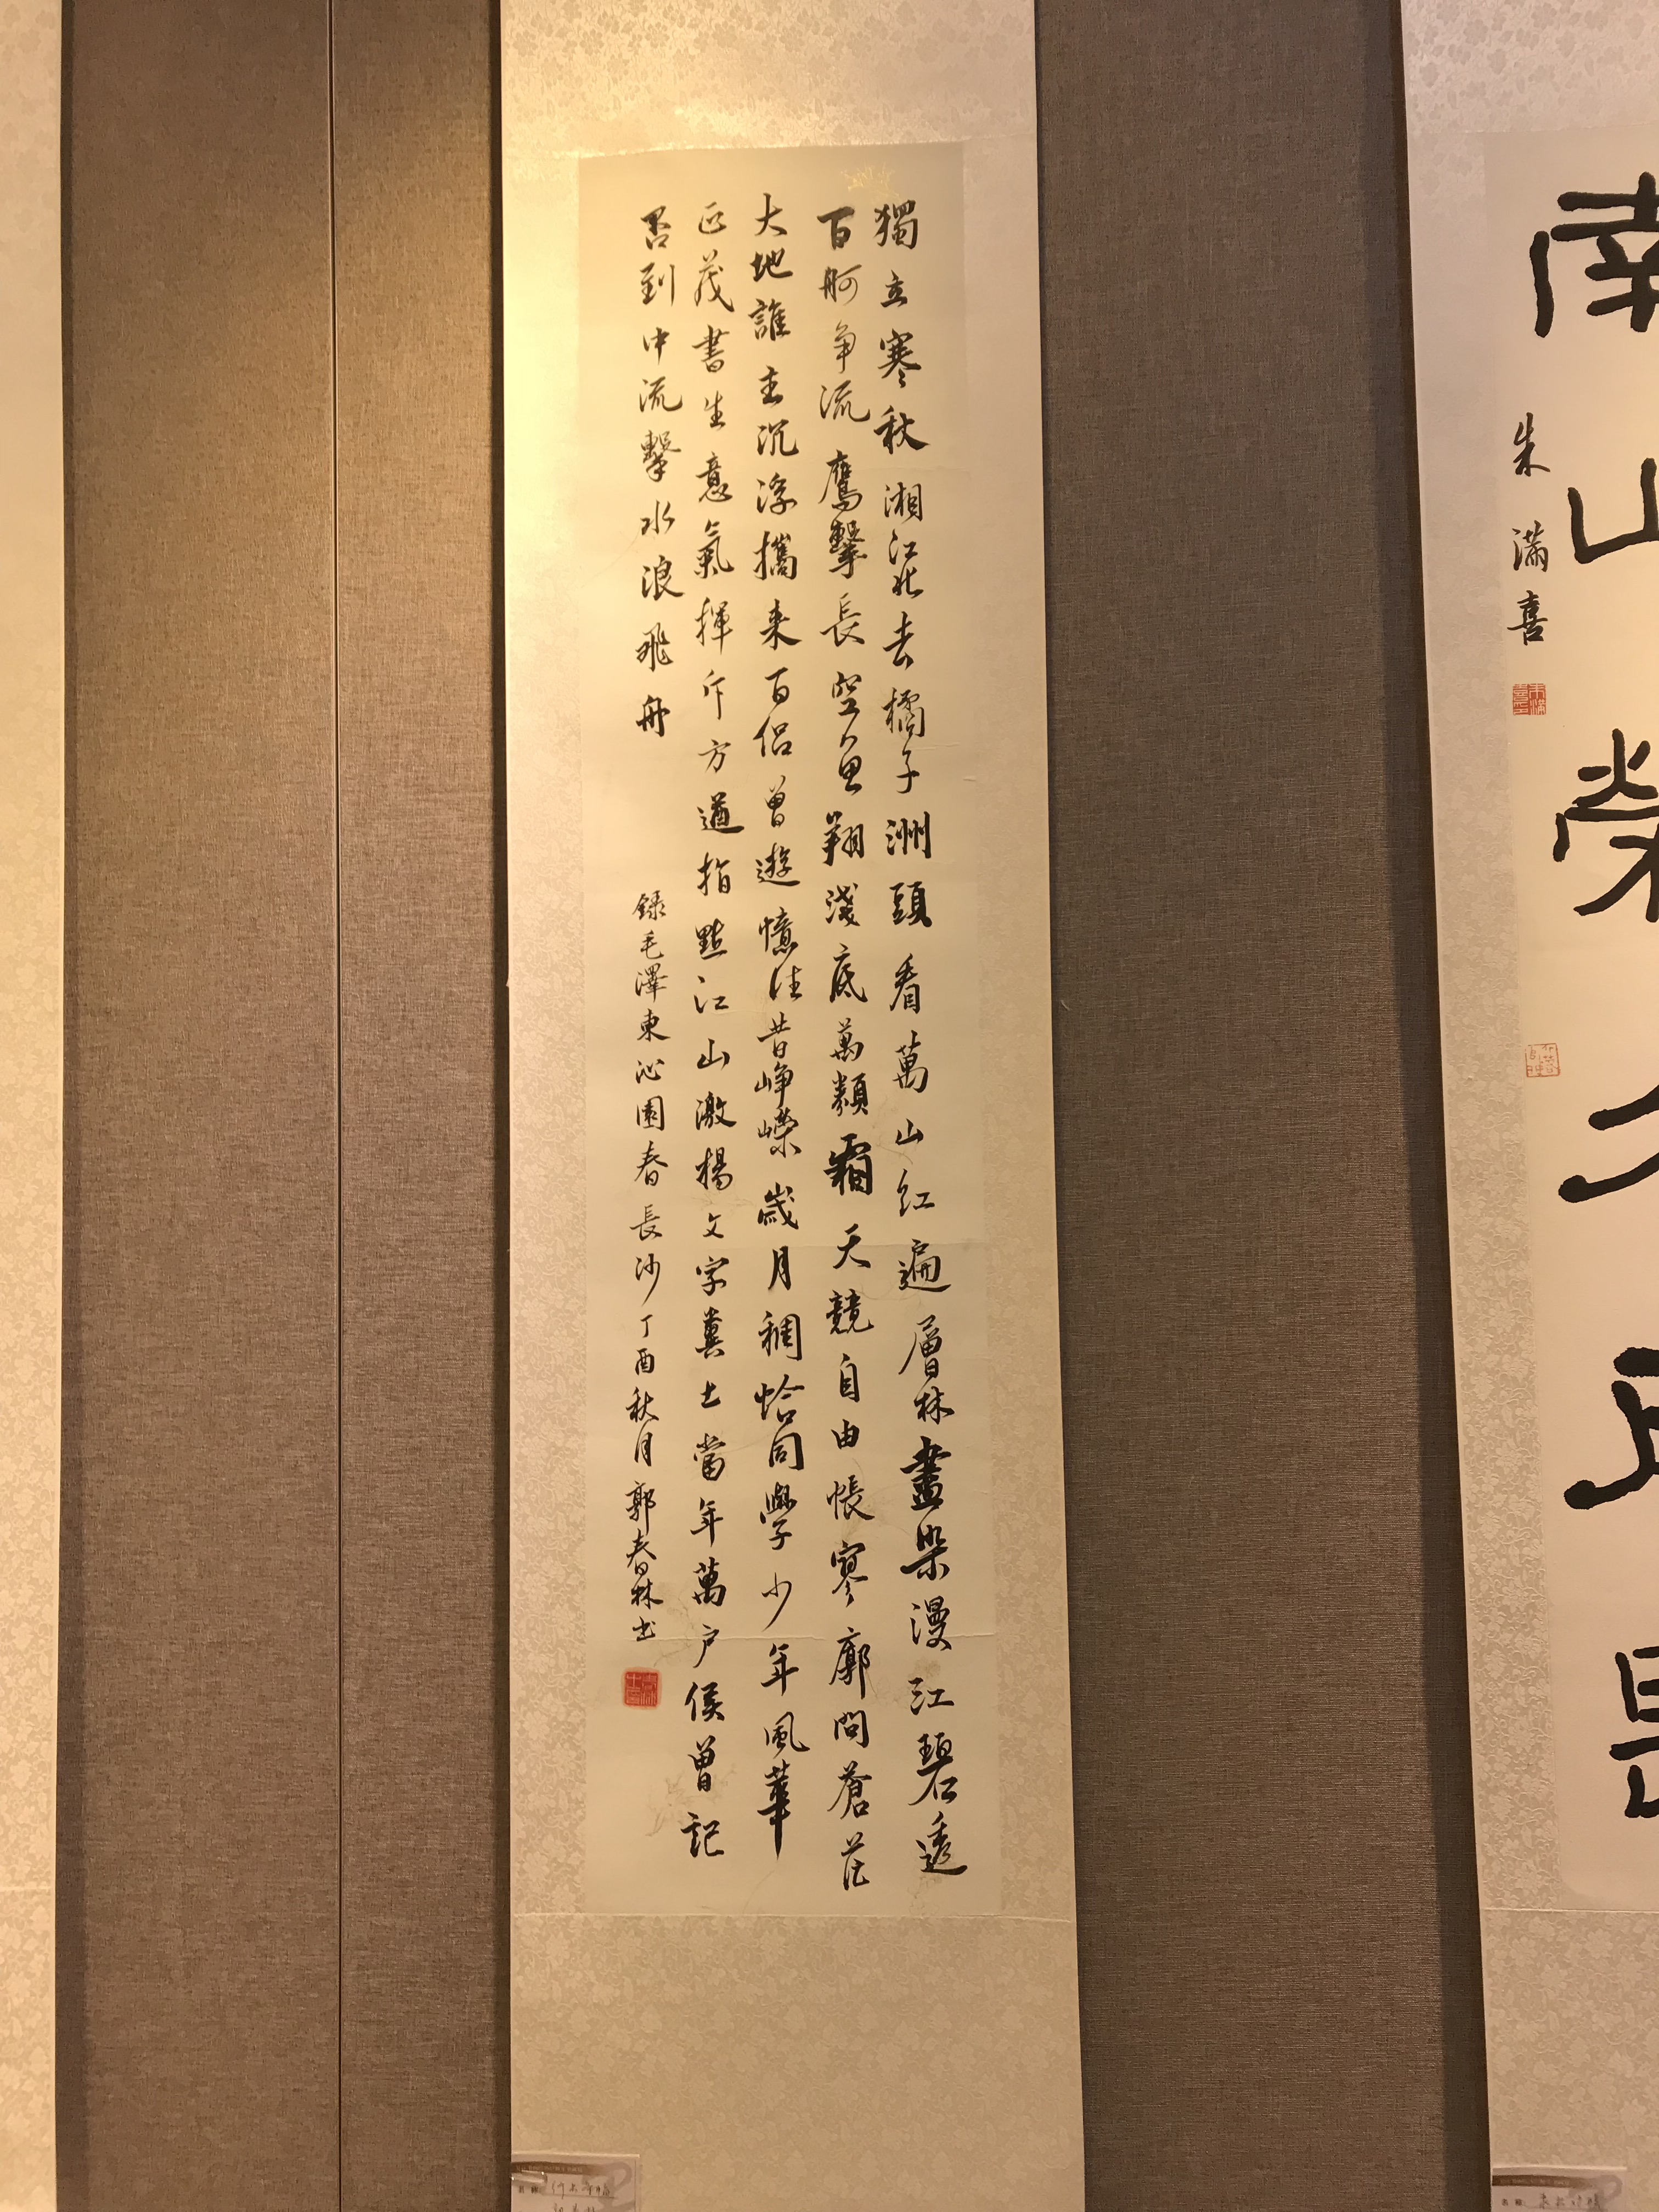 獨立寒秋湘江北去橘子洲頭看萬山紅遍層林盡染漫江碧透
百舸争流鹰擊長空魚翔淺底萬類霜天競自由悵寥廓問蒼茫
大地誰主沉浮攜来百侣曾遊憶往昔崢嶸歲月稠恰同學少年風華
正茂書生意氣揮斥方遒指點江山激揚文字糞土當年萬户侯曾記
否到中流擊水浪飛舟
録毛澤東沁園春長沙丁酉秋月郭春林书
南山榮
朱满喜